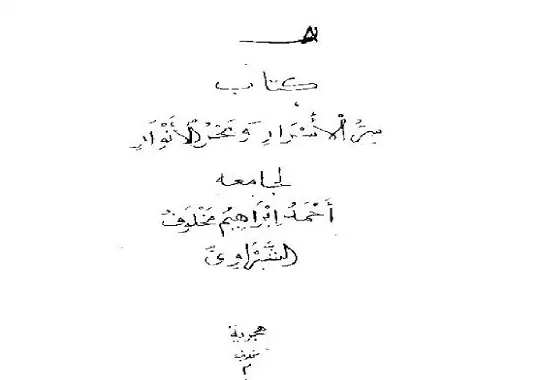 كتاب
سِرُّ الْأَسْرَارِ وَبَحْرُ الْأَنْوَارِ
لجامعه
أَحْمَدُ إِبْرَاهِيمُ مَخْلُوفُ
الشَّبْرَاوِىّ
هجرية